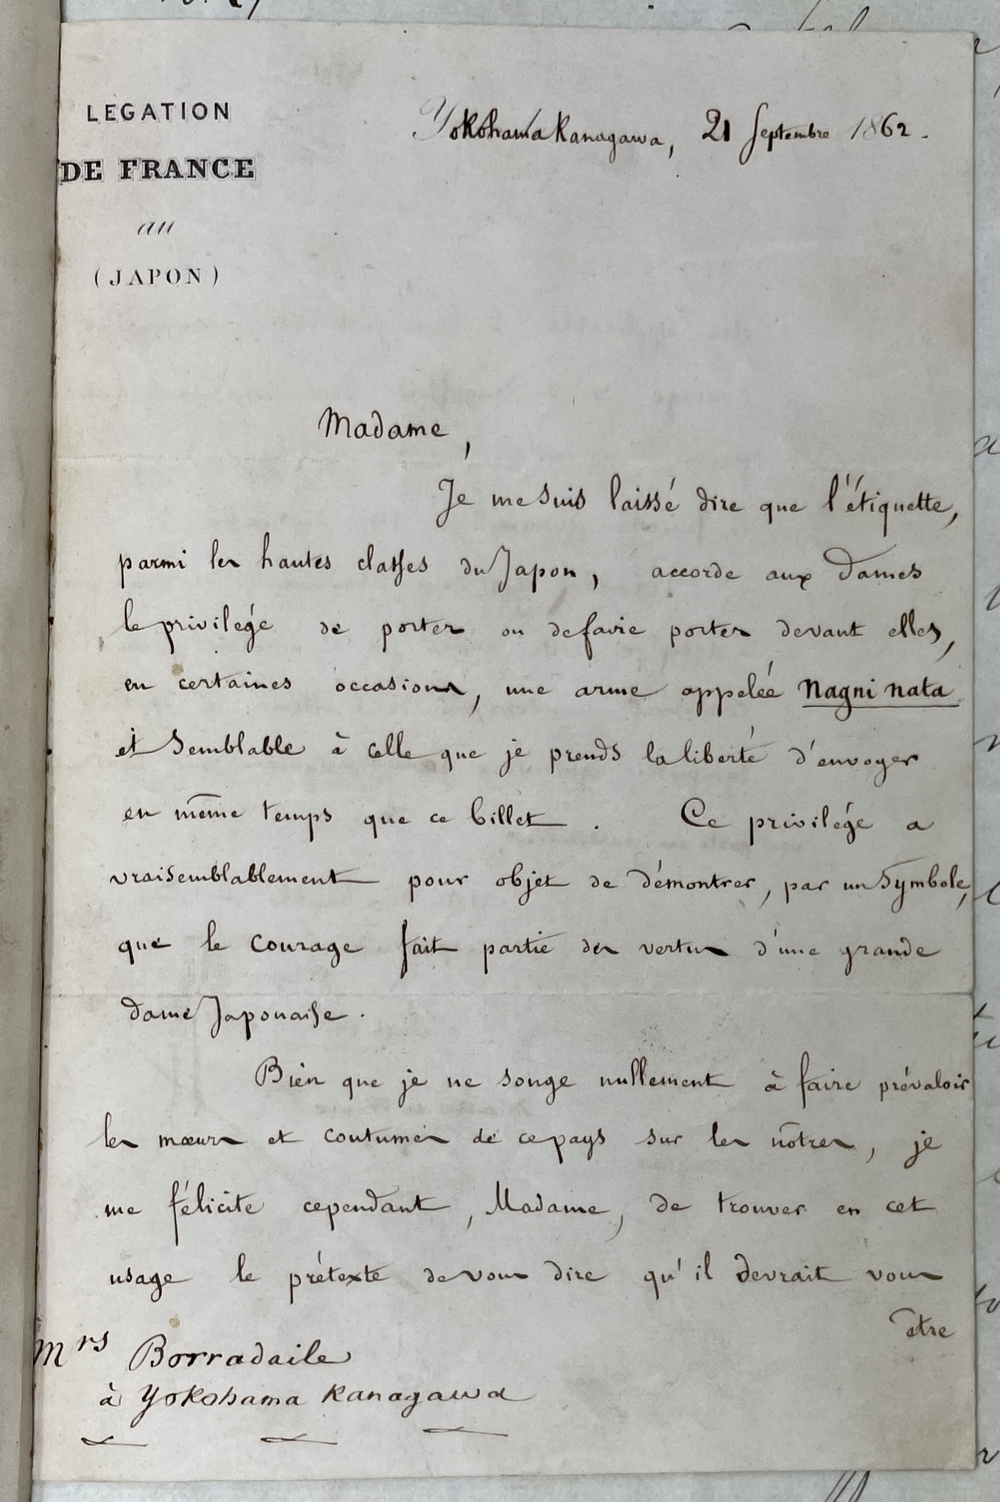 LEGATION
DE FRANCE
au
(JAPON)
Yokohama Kanagawa, 21 Septembre 1862.
Madame,
Je me suis laissé dire que l'étiquette,
parmi les hautes classes du Japon, accorde aux Dames
le privilége de porter ou de faire porter devant elles,
en certaines occasions, une arme appelée Nagni nata
et semblable à celle que je prends la liberté d'envoyer
en même temps que ce billet. Ce privilége a
vraisemblablement pour objet de démontrer, par un Symbole,
que le courage fait partie des vertus d'une grande
dame Japonaise.
Bien que je ne songe nullement à faire prévaloir
les mœurs et coutumes de ce pays sur les nôtres, je
me félicite cependant, Madame, de trouver en cet
usage le prétexte de vous dire qu'il devrait vous
être
Mrs Borradaile
à Yokohama Kanagawa